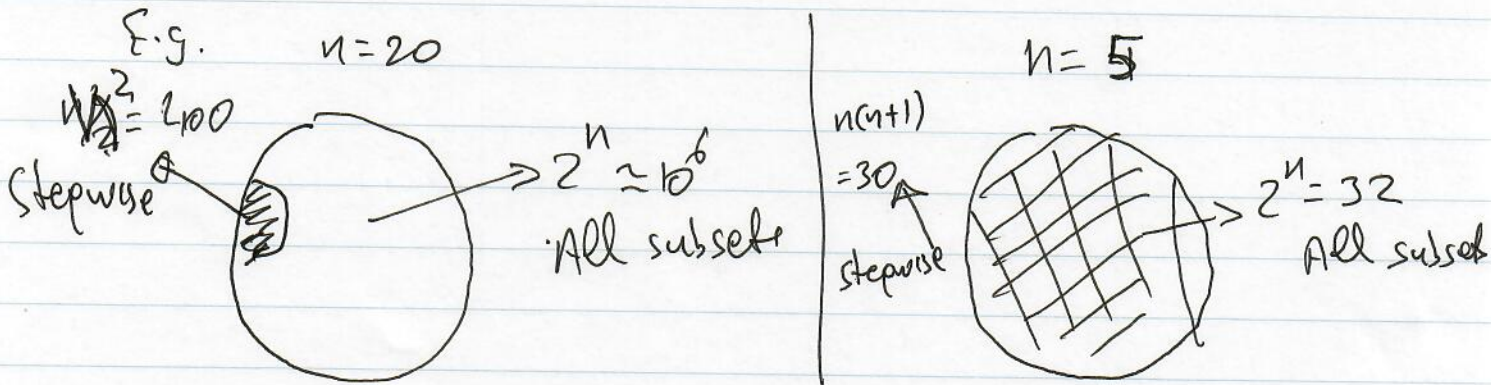 E.g. n=20
= 2100
stepwise
2ⁿ ≃ 10⁶
All subsets
n=5
n(n+1)
=30
stepwise
2ⁿ = 32
All subsets